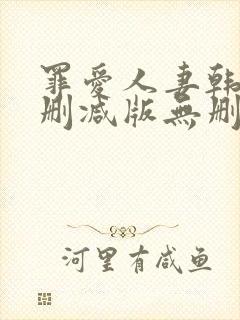 罪愛人妻韩
删减版無删
河里有咸鱼